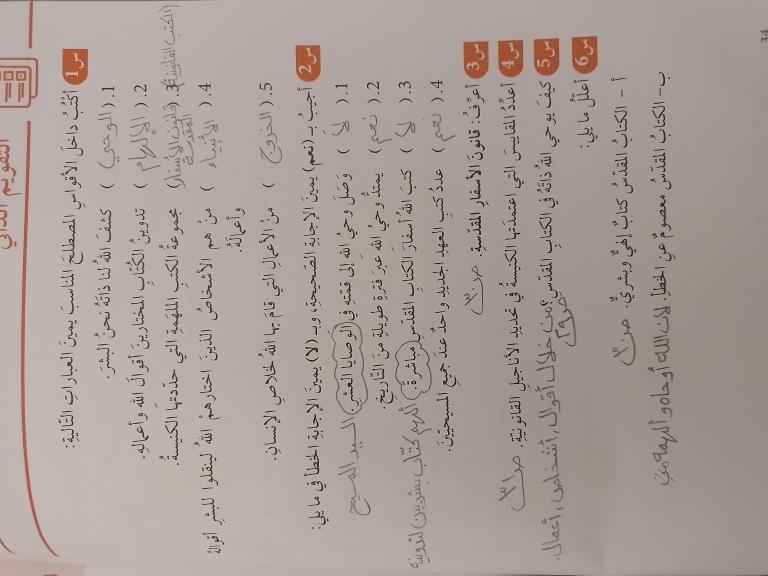 التقويم الذاتي
س1 أكتُبُ داخلَ الأقواسِ المصطلحَ المناسبَ يمينَ العبارات التّالية:
1. ( الوحي ) كشفَ اللهُ لنا ذاتَهُ نحنُ البشر.
2. ( الإلهام ) تدوينُ الكُتّابِ المختارينَ أقوالَ اللهِ وأعمالِهِ.
3. ( قانون الأسفار المقدسة ) مجموعةُ الكتبِ الملهَمةِ الّتي حدّدتها الكنيسةُ.
(الكتب القانونية)
4. ( الأنبياء ) منْ هم الأشخاصُ الّذينَ اختارهمُ اللهُ لينقلوا للبشرِ أقوالَهُ
وأعمالَهُ.
5. ( الخروج ) منْ الأعمالِ الّتي قامَ بها اللهُ لخلاصِ الإنسانِ.
س2 أجيبُ بـ (نعم) يمينَ الإجابةِ الصّحيحةِ، وبـ (لا) يمينَ الإجابةِ الخطأ في ما يلي:
1. ( لا ) وصَلَ وحيُ اللهِ إلى قمّتِهِ في الوصايا العشرِ. السيد المسيح
2. ( نعم ) يمتدُّ وحيُ اللهِ عبرَ فترةٍ طويلةٍ منَ التّاريخِ.
3. ( لا ) كتبَ اللهُ أسفارَ الكتابِ المقدّسِ مباشرةً. ألهم كتّاب بشريين لتدوينه
4. ( نعم ) عددُ كتبِ العهدِ الجديدِ واحدٌ عندَ جميعِ المسيحيّينَ.
س3 أعرِّفُ: قانونَ الأسفارِ المقدسةِ. ص٣٠
س4 أعدّدُ المقاييسَ الّتي اعتمدَتها الكنيسةُ في تحديدِ الأناجيلِ القانونيّةِ. ص٣١
س5 كيفَ يوحي اللهُ ذاتَهُ في الكتابِ المقدّسِ؟ من خلال أقوال، أشخاص، أعمال.
ص٢٩
س6 أعلّلُ ما يلي:
أ – الكتابُ المقدّسُ كتابٌ إلهيٌّ وبشريٌّ. ص٣٠
ب- الكتابُ المقدّسُ معصومٌ عنِ الخطأِ. لأن الله أوحاه وألهمه
34